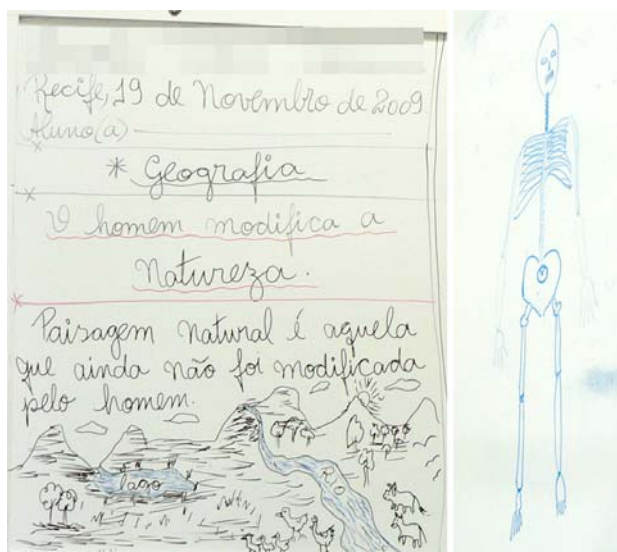 Recife, 19 de Novembro de 2009
Aluno(a)
* Geografia
O homem modifica a
Natureza.
Paisagem natural é aquela
que ainda não foi modificada
pelo homem.
lago
Rio